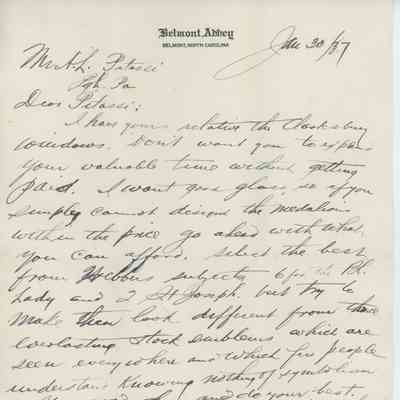 Belmont Abbey
BELMONT, NORTH CAROLINA
Jan 30/37
Mr A.L. Pitassi
Pgh. Pa
Dear Pitassi:
I have yours relative the Clarksburg
windows. Don't want you to expend
your valuable time without getting
paid. I want good glass, so if you
simply cannot discard the medalions
within the price go ahead with what
you can afford. Select the best
from subjects 6 for the Bl.
Lady and 2 St Joseph, but try to
make them look different from those
everlasting stock emblems which are
seen everywhere and which few people
understand knowing nothing of symbolism
and do your best.